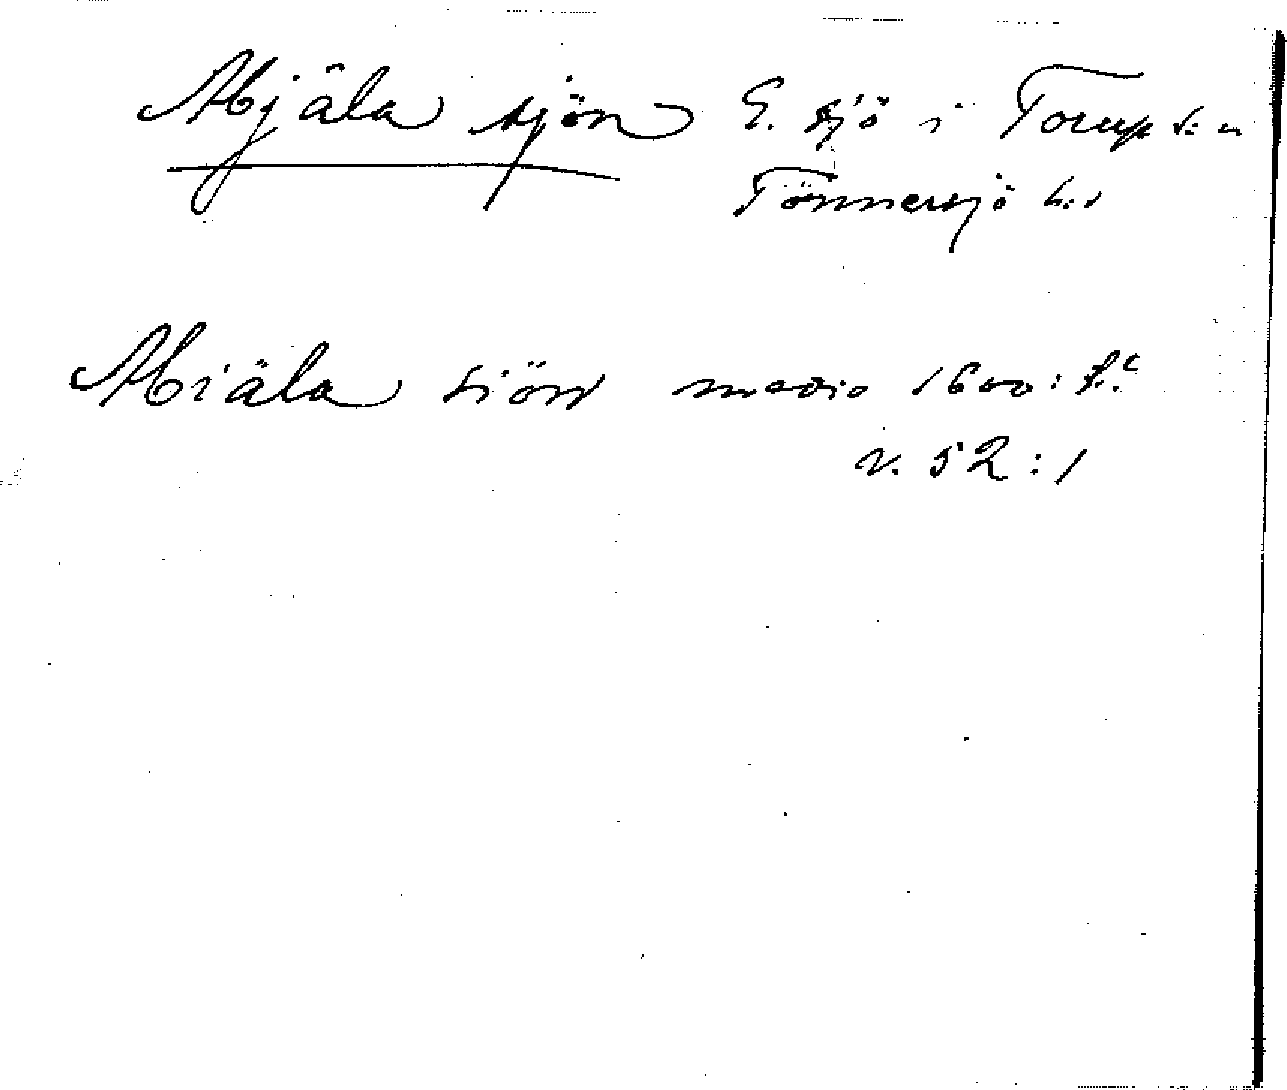 Mjäla sjön E. sjö i Torup s:n
Tönnersjö h:d
Miäla siön medio 1600:t.
v. 52:1